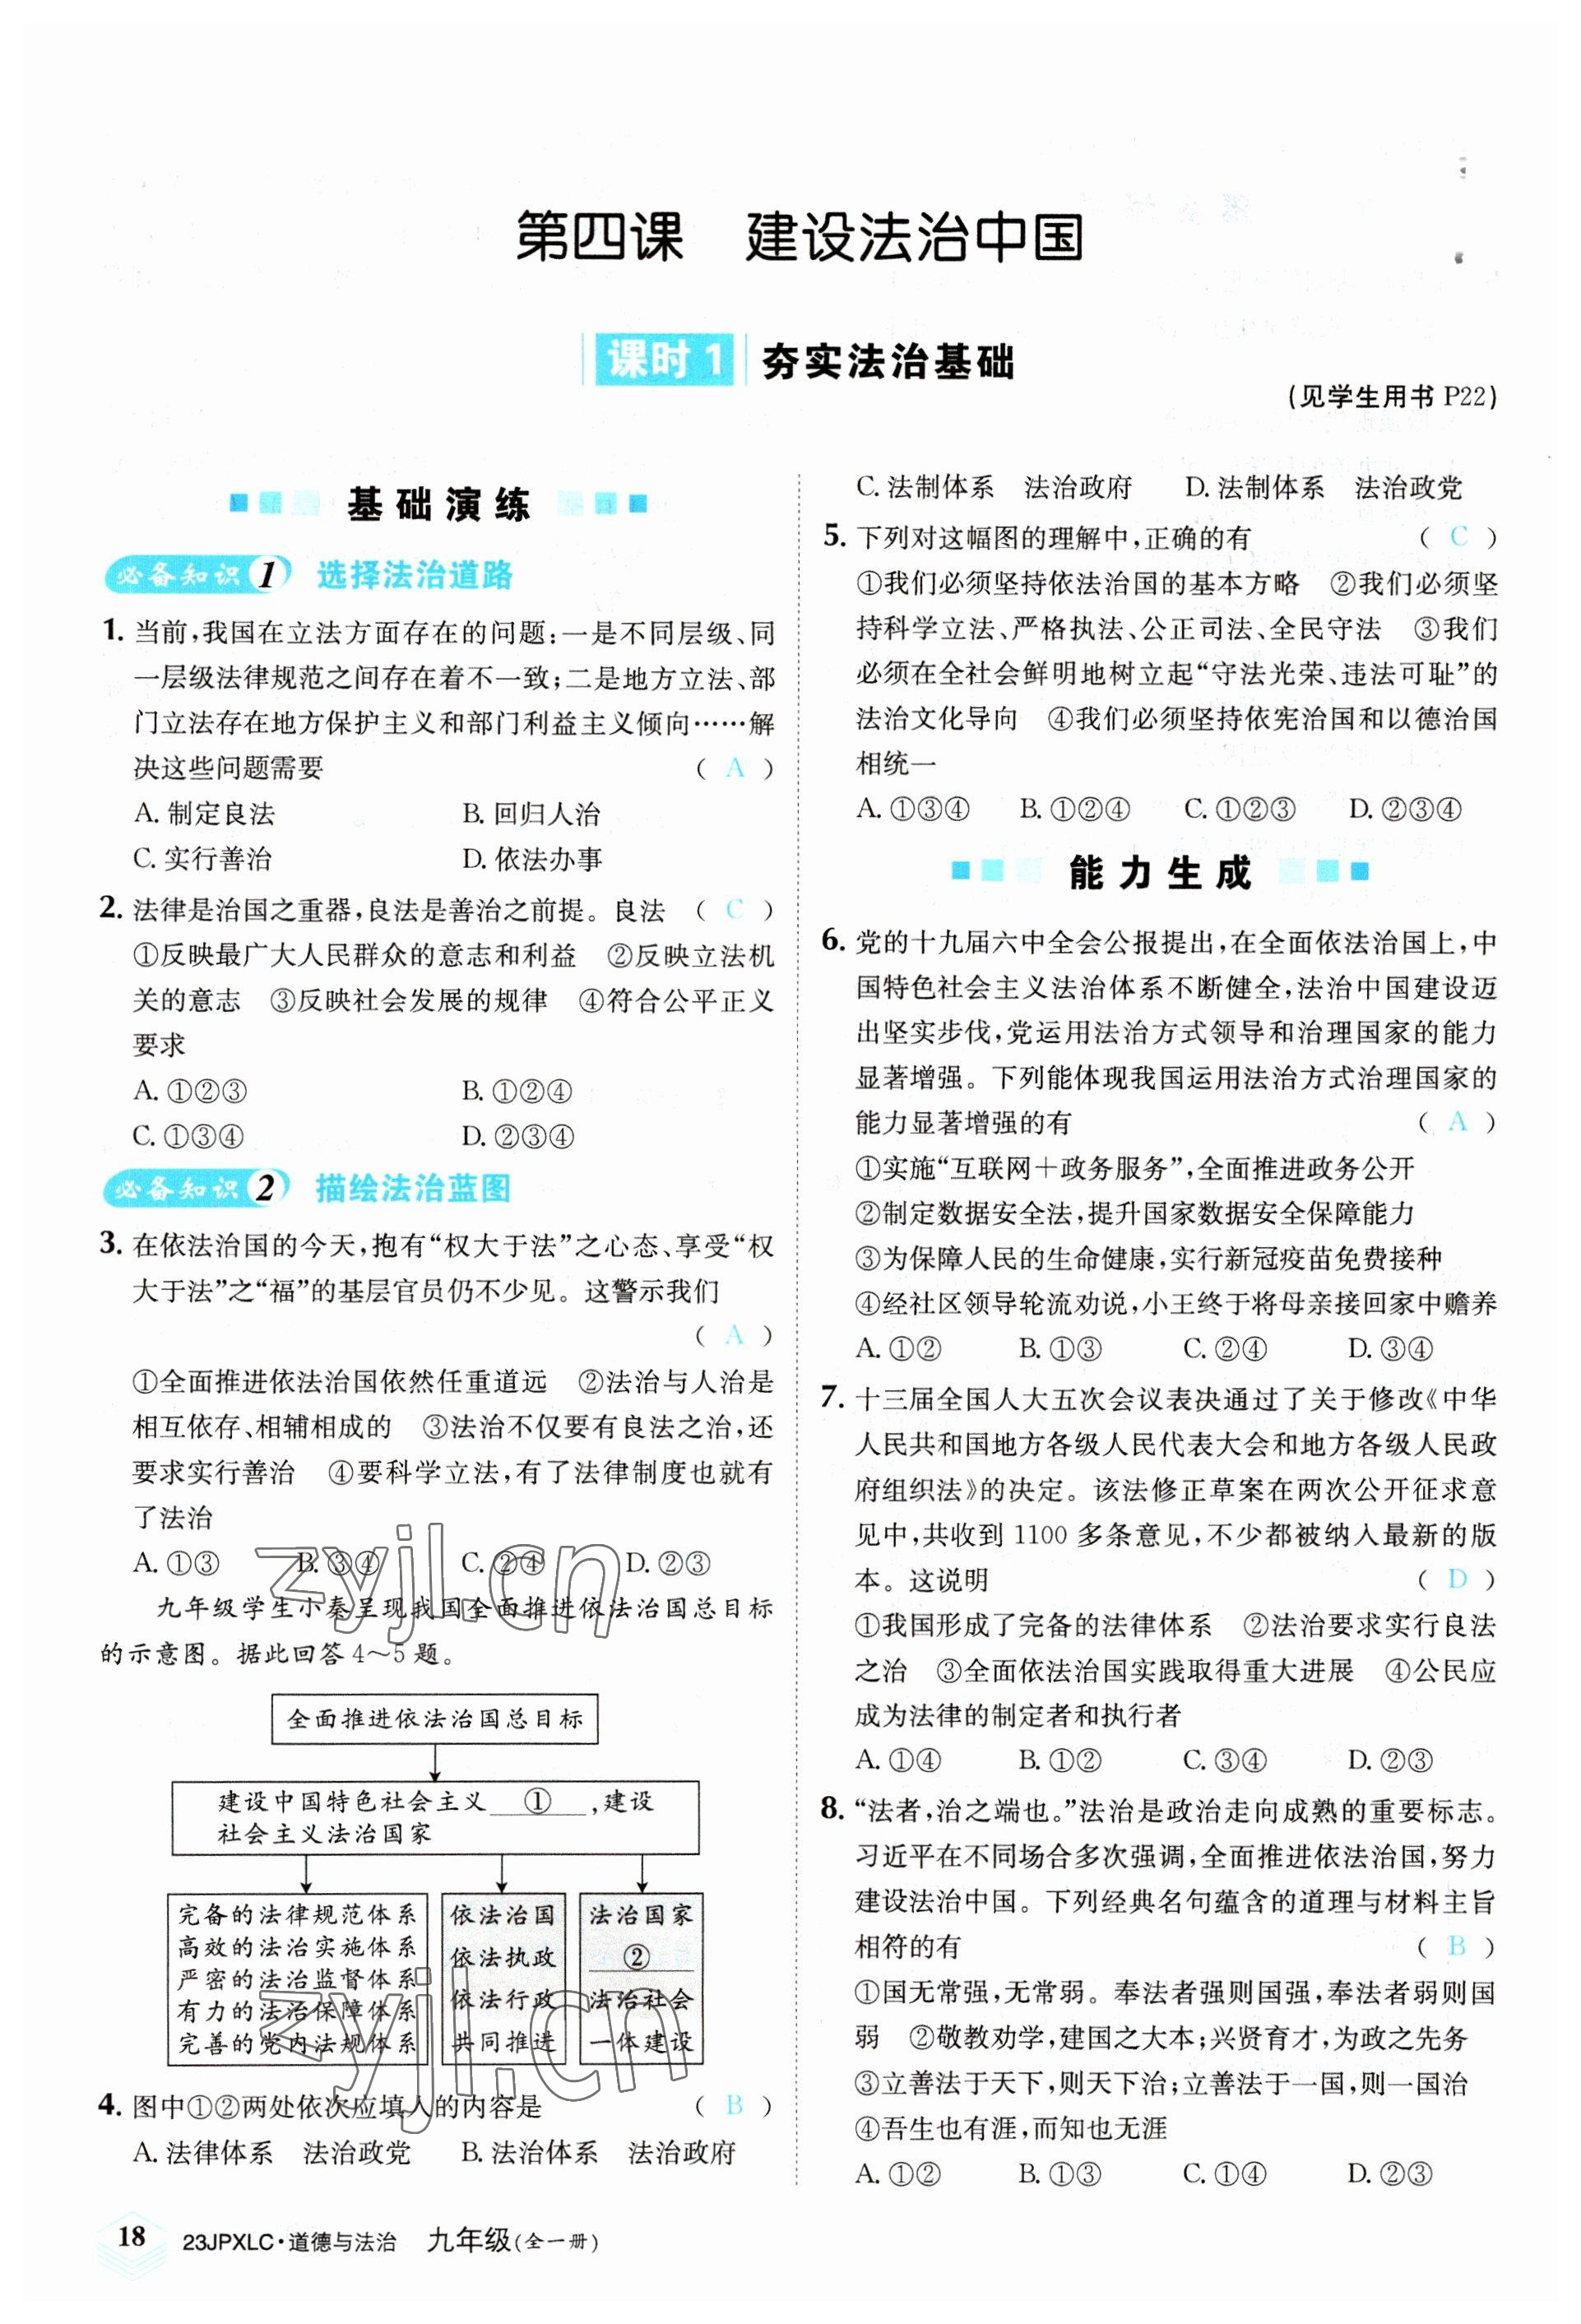 第四课 建设法治中国
课时1 夯实法治基础
(见学生用书 P22)
基础演练
必备知识1 选择法治道路
1. 当前,我国在立法方面存在的问题:一是不同层级、同
一层级法律规范之间存在着不一致;二是地方立法、部
门立法存在地方保护主义和部门利益主义倾向……解
决这些问题需要 ( A )
A. 制定良法 B. 回归人治
C. 实行善治 D. 依法办事
2. 法律是治国之重器,良法是善治之前提。良法 ( C )
①反映最广大人民群众的意志和利益 ②反映立法机
关的意志 ③反映社会发展的规律 ④符合公平正义
要求
A. ①②③ B. ①②④
C. ①③④ D. ②③④
必备知识2 描绘法治蓝图
3. 在依法治国的今天,抱有“权大于法”之心态、享受“权
大于法”之“福”的基层官员仍不少见。这警示我们
( A )
①全面推进依法治国依然任重道远 ②法治与人治是
相互依存、相辅相成的 ③法治不仅要有良法之治,还
要求实行善治 ④要科学立法,有了法律制度也就有
了法治
A. ①③ B. ③④ C. ②④ D. ②③
九年级学生小秦呈现我国全面推进依法治国总目标
的示意图。据此回答4~5题。
全面推进依法治国总目标
建设中国特色社会主义 ① ,建设
社会主义法治国家
完备的法律规范体系
高效的法治实施体系
严密的法治监督体系
有力的法治保障体系
完善的党内法规体系
依法治国
依法执政
依法行政
共同推进
法治国家
②
法治社会
一体建设
4. 图中①②两处依次应填入的内容是 ( B )
A. 法律体系 法治政党 B. 法治体系 法治政府
C. 法制体系 法治政府 D. 法制体系 法治政党
5. 下列对这幅图的理解中,正确的有 ( C )
①我们必须坚持依法治国的基本方略 ②我们必须坚
持科学立法、严格执法、公正司法、全民守法 ③我们
必须在全社会鲜明地树立起“守法光荣、违法可耻”的
法治文化导向 ④我们必须坚持依宪治国和以德治国
相统一
A. ①③④ B. ①②④ C. ①②③ D. ②③④
能力生成
6. 党的十九届六中全会公报提出,在全面依法治国上,中
国特色社会主义法治体系不断健全,法治中国建设迈
出坚实步伐,党运用法治方式领导和治理国家的能力
显著增强。下列能体现我国运用法治方式治理国家的
能力显著增强的有 ( A )
①实施“互联网+政务服务”,全面推进政务公开
②制定数据安全法,提升国家数据安全保障能力
③为保障人民的生命健康,实行新冠疫苗免费接种
④经社区领导轮流劝说,小王终于将母亲接回家中赡养
A. ①② B. ①③ C. ②④ D. ③④
7. 十三届全国人大五次会议表决通过了关于修改《中华
人民共和国地方各级人民代表大会和地方各级人民政
府组织法》的决定。该法修正草案在两次公开征求意
见中,共收到1100多条意见,不少都被纳入最新的版
本。这说明 ( D )
①我国形成了完备的法律体系 ②法治要求实行良法
之治 ③全面依法治国实践取得重大进展 ④公民应
成为法律的制定者和执行者
A. ①④ B. ①② C. ③④ D. ②③
8. “法者,治之端也。”法治是政治走向成熟的重要标志。
习近平在不同场合多次强调,全面推进依法治国,努力
建设法治中国。下列经典名句蕴含的道理与材料主旨
相符的有 ( B )
①国无常强,无常弱。奉法者强则国强,奉法者弱则国
弱 ②敬教劝学,建国之大本;兴贤育才,为政之先务
③立善法于天下,则天下治;立善法于一国,则一国治
④吾生也有涯,而知也无涯
A. ①② B. ①③ C. ①④ D. ②③
zyjl.cn
zyjl.cn
18 23JPXLC·道德与法治 九年级(全一册)